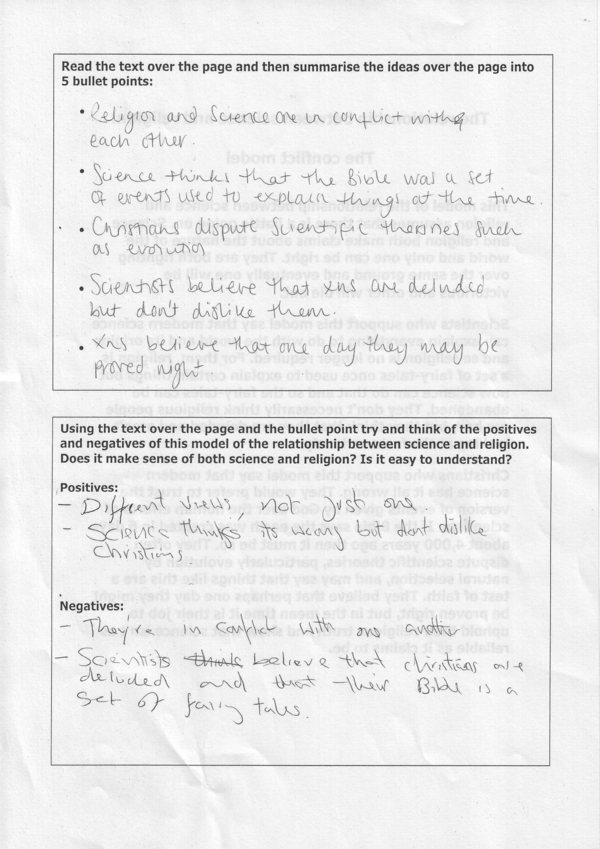 Read the text over the page and then summarise the ideas over the page into
5 bullet points:
• Religion and Science are in conflict with
each other.
• Science thinks that the Bible was a set
of events used to explain things at the time.
• Christians dispute Scientific theories such
as evolution
• Scientists believe that xns are deluded
but don't dislike them.
• xns believe that one day they may be
proved right.
Using the text over the page and the bullet point try and think of the positives
and negatives of this model of the relationship between science and religion.
Does it make sense of both science and religion? Is it easy to understand?
Positives:
– Different views, not just one.
– Science thinks its wrong but dont dislike
Christians.
Negatives:
– They're in conflict with one another
– Scientists think believe that christians are
deluded and that their Bible is a
set of fairy tales.